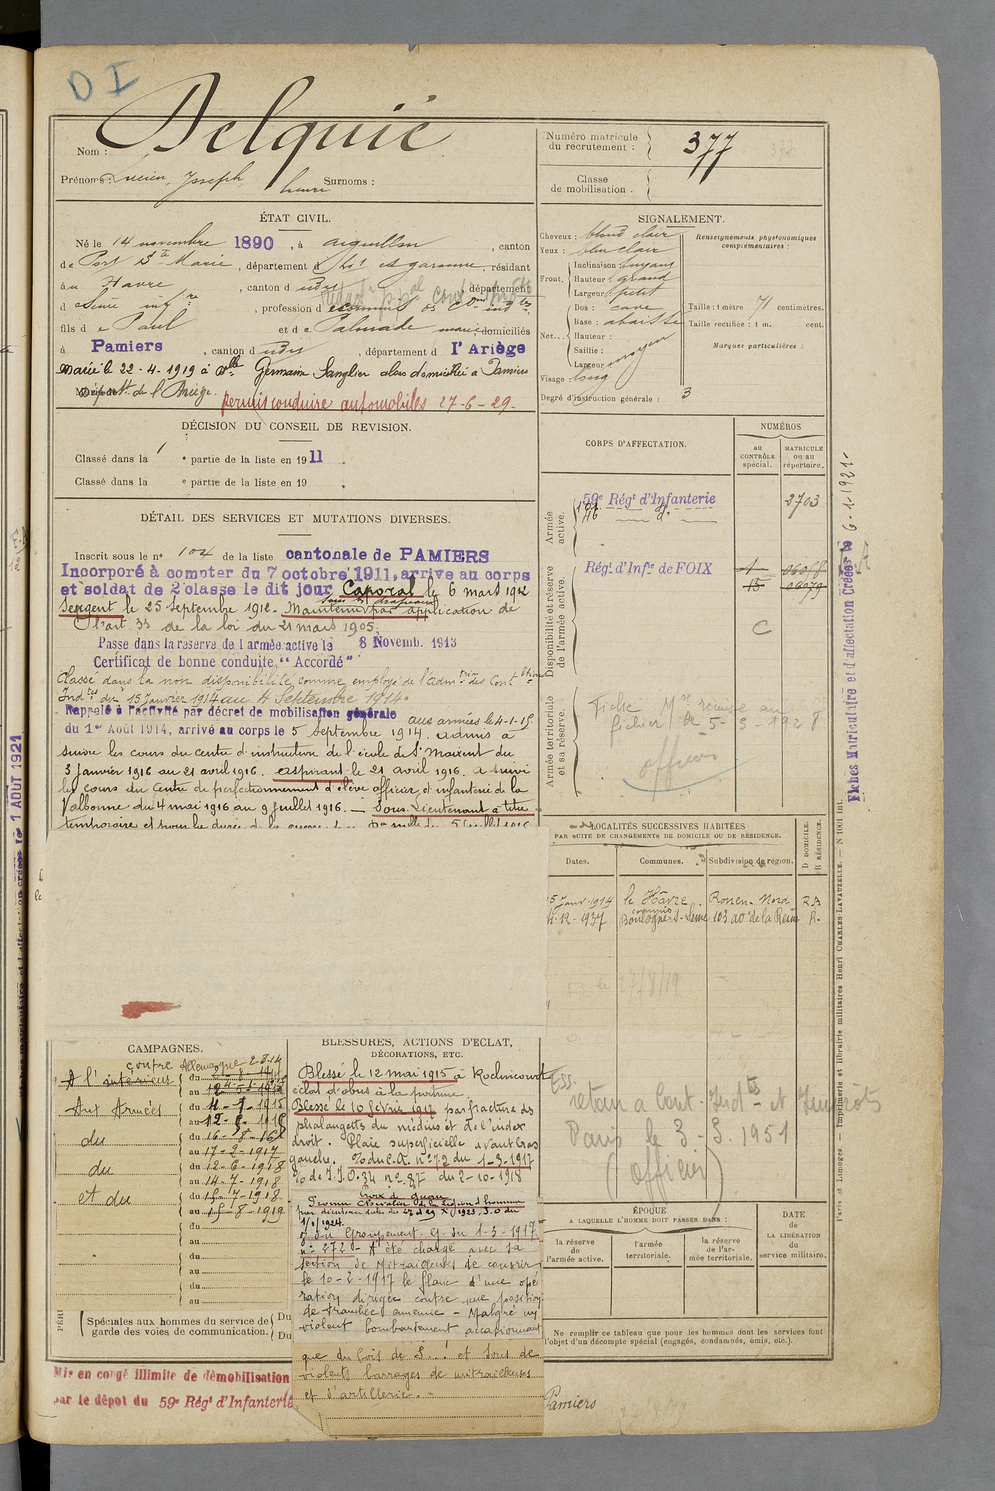 D I
Nom : Delquié
Prénoms : Lucien, Joseph henri Surnoms :
Numéro matricule du recrutement : 377
Classe de mobilisation :
ÉTAT CIVIL.
Né le 14 novembre 1890, à aiguillon, canton
de Port Ste Marie, département d Lot et garonne, résidant
au Havre, canton d udis, département
d Seine infre, profession d
fils d e Paul et d e Palmade domiciliés
à Pamiers, canton d udis, département d l'Ariège
Marié le 22-4-1919 à Dlle Germain Sanglier alors domiciliée à Pamiers
de l'Ariège.
permis conduire automobiles 27-6-29.
DÉCISION DU CONSEIL DE REVISION.
Classé dans la 1e partie de la liste en 1911.
Classé dans la e partie de la liste en 19 .
DÉTAIL DES SERVICES ET MUTATIONS DIVERSES.
Inscrit sous le no 104 de la liste cantonale de PAMIERS
Incorporé à compter du 7 octobre 1911, arrive au corps
et soldat de 2e classe le dit jour Caporal le 6 mars 1912
Sergent le 25 Septembre 1912. Maintenu sous les drapeaux par application de
l'art. 33 de la loi du 21 mars 1905.
Passe dans la réserve de l'armée active le 8 Novemb. 1913
Certificat de bonne conduite "Accordé"
Classé dans la non disponibilité comme employé de l'Admtion des Contbtions
Indtes du 15 Janvier 1914 au 4 Septembre 1914.
Rappelé à l'activité par décret de mobilisation générale
du 1er Août 1914, arrivé au corps le 5 Septembre 1914. aux armées le 4-1-15 admis à
suivre les cours du centre d'instruction de l'école de St Maixent du
3 Janvier 1916 au 21 avril 1916. aspirant le 21 avril 1916. a suivi
les cours du Centre de perfectionnement d'élève officier d'infanterie de la
Valbonne du 4 mai 1916 au 9 Juillet 1916. — Sous Lieutenant à titre
temporaire et pour la durée de la guerre
SIGNALEMENT.
Cheveux : blond clair
Yeux : bleu clair
Front. Inclinaison : fuyant
Hauteur : grand
Largeur : petit
Nez. Dos : cave
Base : abaissée
Hauteur :
Saillie : moyen
Largeur :
Visage : long
Renseignements physionomiques complémentaires :
Taille : 1 mètre 71 centimètres.
Taille rectifiée : 1 m. cent.
Marques particulières :
Degré d'instruction générale : 3
CORPS D'AFFECTATION.
NUMÉROS
au CONTRÔLE spécial.
MATRICULE ou au répertoire.
Armée active.
59e Régt d'Infanterie 2703
Disponibilité et réserve de l'armée active.
Régt d'Infie de FOIX
C
Armée territoriale et sa réserve.
Fiche Mle remise au
fichier le 5-3-1928
officier
LOCALITÉS SUCCESSIVES HABITÉES
PAR SUITE DE CHANGEMENTS DE DOMICILE OU DE RÉSIDENCE.
Dates. Communes. Subdivision de région. D DOMICILE. R RÉSIDENCE.
15 Janv. 1914 le Hâvre Rouen-Nord RA
-12-1937 Boulogne s/ Seine R.
CAMPAGNES.
contre Allemagne 2-8-14
A l'intérieur
Aux Armées
du 4-1-1915
du 16-8-16
au 17-2-1917
du du 12-6-1918
au 14-7-1918
et du du 15-7-1918
au 15-8-1919
Spéciales aux hommes du service de garde des voies de communication. Du Du
Mis en congé illimité de démobilisation
par le dépot du 59e Régt d'Infanterie
BLESSURES, ACTIONS D'ÉCLAT, DÉCORATIONS, ETC.
Blessé le 12 mai 1915 à Roclincourt
éclat d'obus à la poitrine
Blessé le 10 février 1917 par fracture des
phalangetts du médius et de l'index
droit. Plaie superficielle avant bras
gauche. du C.A. no 72 du 1-3-1917
no 87 du 2-10-1918
Croix de Guerre
Promu Chevalier de la Légion d'honneur
par décision
du Groupement G. du 1-3-1917
no 272 - A été chargé avec sa
Section de Mitrailleuses de couvrir
le 10-2-1917 le flanc d'une opé
ration dirigée contre une position
de tranchée ennemie - Malgré un
violent bombardement
que du bois de S...! et sous de
violents barrages de mitrailleuses
et d'artillerie. -
retour a Cont. Indtes et Impôts
Paris le 3-S. 1951
(officier)
ÉPOQUE
A LAQUELLE L'HOMME DOIT PASSER DANS :
la réserve de l'armée active.
l'armée territoriale.
la réserve de l'armée territoriale.
DATE de LA LIBÉRATION du service militaire.
Ne remplir ce tableau que pour les hommes dont les services font
l'objet d'un décompte spécial (engagés, condamnés, omis, etc.).
Pamiers
Fiches Matriculaire et d'affectation Créées le 6-1-1921-
Paris et Limoges. — Imprimerie et librairie militaires Henri CHARLES-LAVAUZELLE. — N 1001 int.
1 AOUT 1921